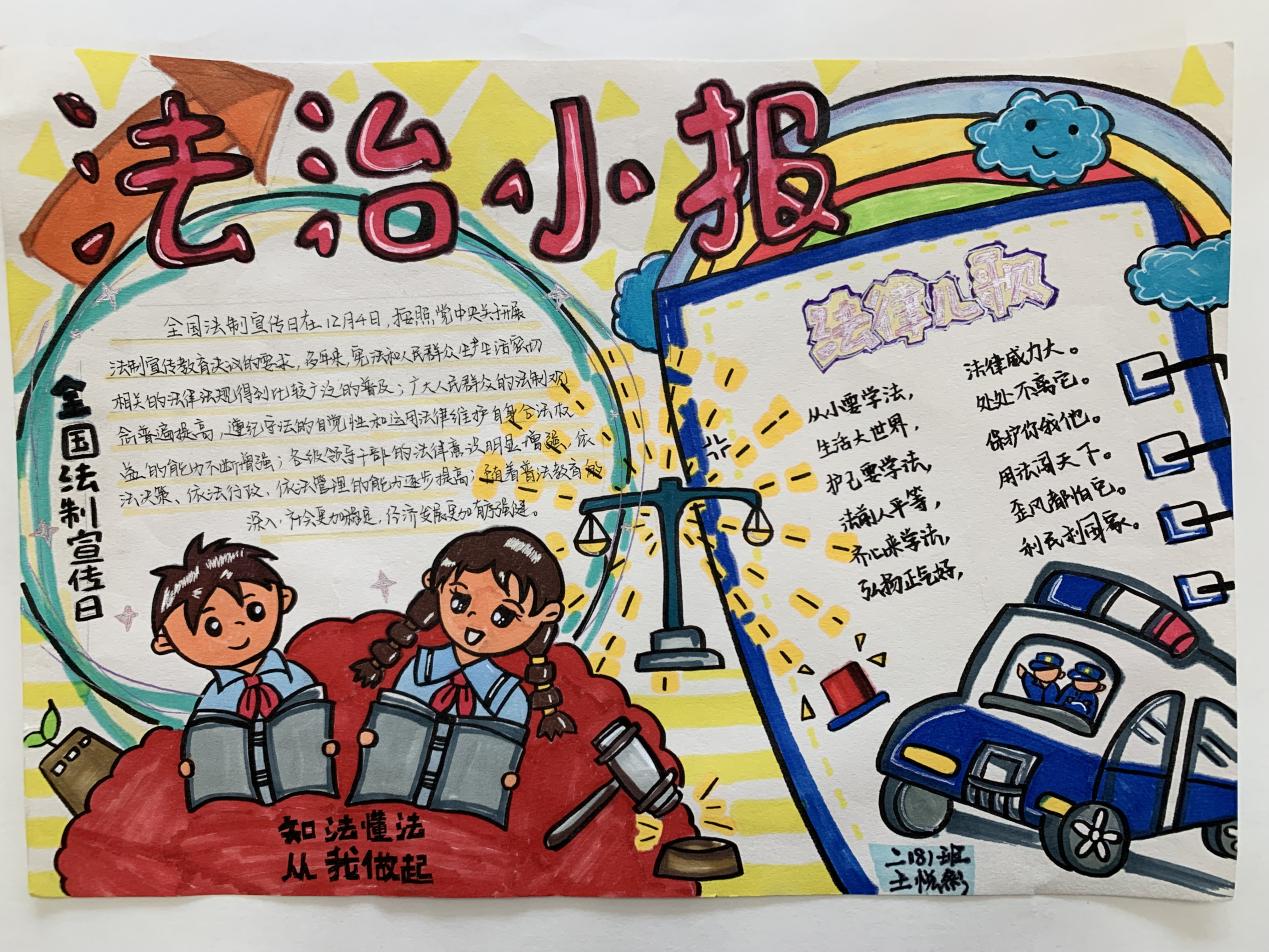 法治小报
全国法制宣传日在12月4日，按照党中央关于开展
法制宣传教育决议的要求，多年来，宪法和人民群众生产生活密切
相关的法律法规得到比较广泛的普及；广大人民群众的法制观
念普遍提高，遵纪守法的自觉性和运用法律维护自身合法权
益的能力不断增强；各级领导干部的法律意识明显增强，依
法决策、依法行政、依法管理的能力逐步提高；随着普法教育的
深入，社会更加稳定，经济发展更加有序强健。
全国法制宣传日
法律儿歌
从小要学法，
生活大世界，
护己要学法，
法前人平等，
齐心来学法，
弘扬正气好，
法律威力大。
处处不离它。
保护你我他。
用法闯天下。
歪风都怕它。
利民利国家。
知法懂法
从我做起
二(8)班
王悦